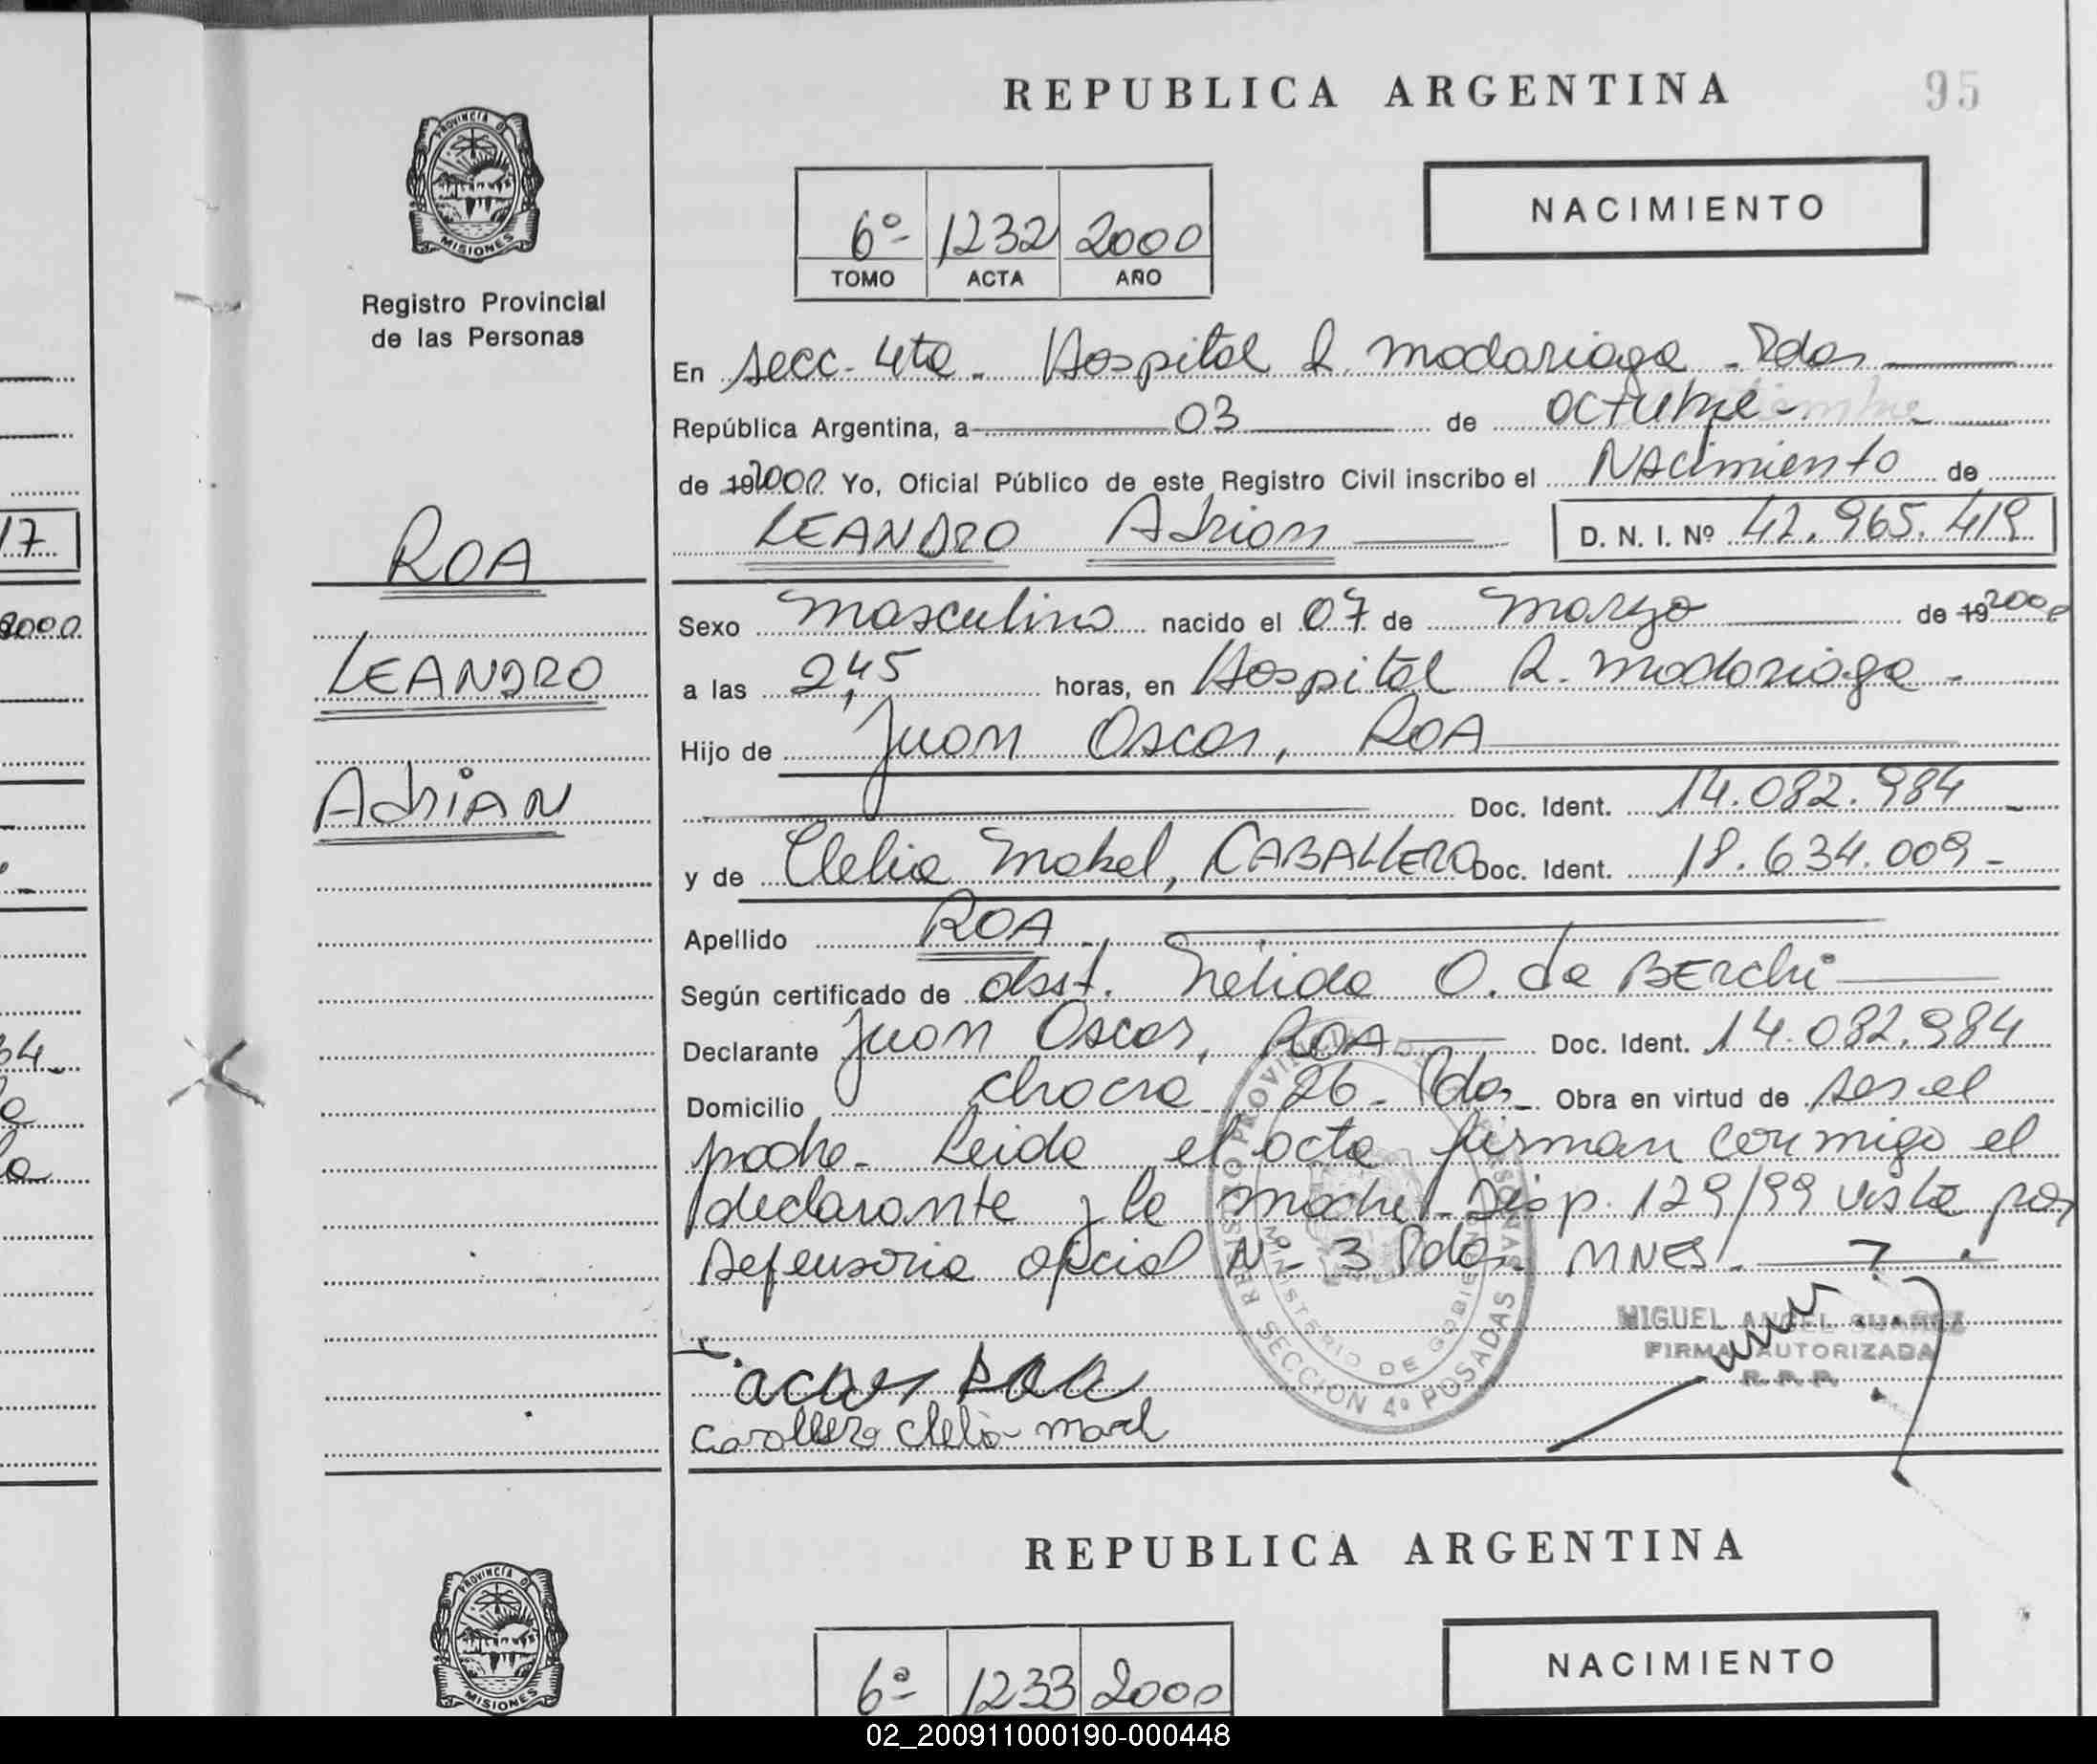 REPUBLICA ARGENTINA
95
PROVINCIA D
MISIONES
Registro Provincial
de las Personas
6º 1232 2000
TOMO ACTA AÑO
NACIMIENTO
En Secc. 4ta. Hospital R. Madariaga - Pdas
República Argentina, a 03 de octubre
de 192000 Yo, Oficial Público de este Registro Civil inscribo el Nacimiento de
LEANDRO Adrian D. N. I. Nº 42.965.419
ROA
LEANDRO
AdriAN
Sexo masculino nacido el 07 de marzo de 192000
a las 2,45 horas, en Hospital R. Madariaga -
Hijo de Juan Oscar, ROA
Doc. Ident. 14.082.984 -
y de Clelia Mabel, CABALLERO Doc. Ident. 18.634.009 -
Apellido ROA
Según certificado de obst. Nelida O. de BERchi
Declarante Juan Oscar, ROA Doc. Ident. 14.082.984
Domicilio chacra 26 - Pdas - Obra en virtud de ser el
padre - Leida el acta firman conmigo el
declarante y la madre - Disp. 129/99 vista por
Defensoria oficial Nº 3 Pdas. MNES.
REGISTRO PROVINCIAL DE LAS PERSONAS
MINISTERIO DE GOBIERNO
SECCION 4º POSADAS
MIGUEL ANGEL SUAREZ
FIRMA AUTORIZADA
R. P. P.
oscar Roa
Caballero Clelia Mabel
17
2000
64
REPUBLICA ARGENTINA
PROVINCIA D
MISIONES
6º 1233 2000
NACIMIENTO
02_200911000190-000448